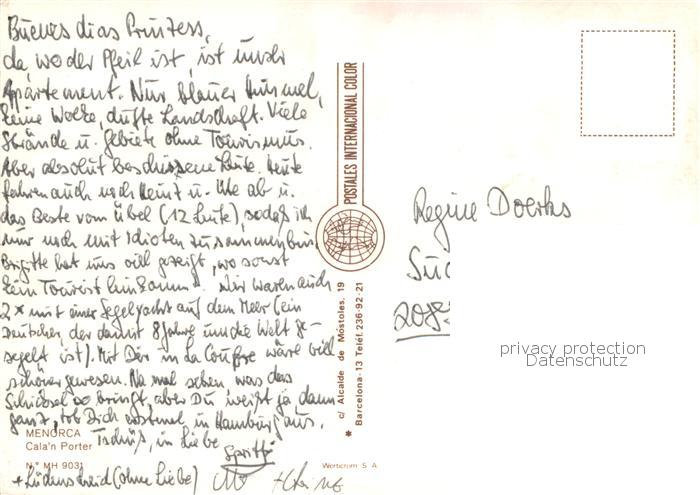 Buenos dias Prinzess,
da wo der Pfeil ist, ist unser
Appartement. Nur blauer Himmel,
keine Wolke, dufte Landschaft. Viele
Strände u. Gebiete ohne Tourismus.
Aber absolut beschissene Leute. Heute
fahren auch noch Heinz u. Ute ab u.
das Beste vom übel (12 Leute), sodaß ich
nur noch mit Idioten zusammenbin.
Brigitte hat uns viel gezeigt, wo sonst
kein Tourist hinkommt. Wir waren auch
2x mit einer Segelyacht auf dem Meer (ein
Deutscher, der damit 8 Jahre um die Welt ge-
segelt ist). Mit Dir in La Couffre wäre viel
schöner gewesen. Na mal sehen was das
Schicksal so bringt, aber Du weißt ja dann
ganz, tob Dich erstmal in Hamburg aus.
Tschüß, in Liebe
+ Lüdenscheid (ohne Liebe)
MENORCA
Cala'n Porter
N.° MH 9031
POSTALES INTERNACIONAL COLOR
c/ Alcalde de Móstoles, 19
* Barcelona-13 Teléf. 236-92-21
Wertcrom S A
Regine Doerks
privacy protection
Datenschutz